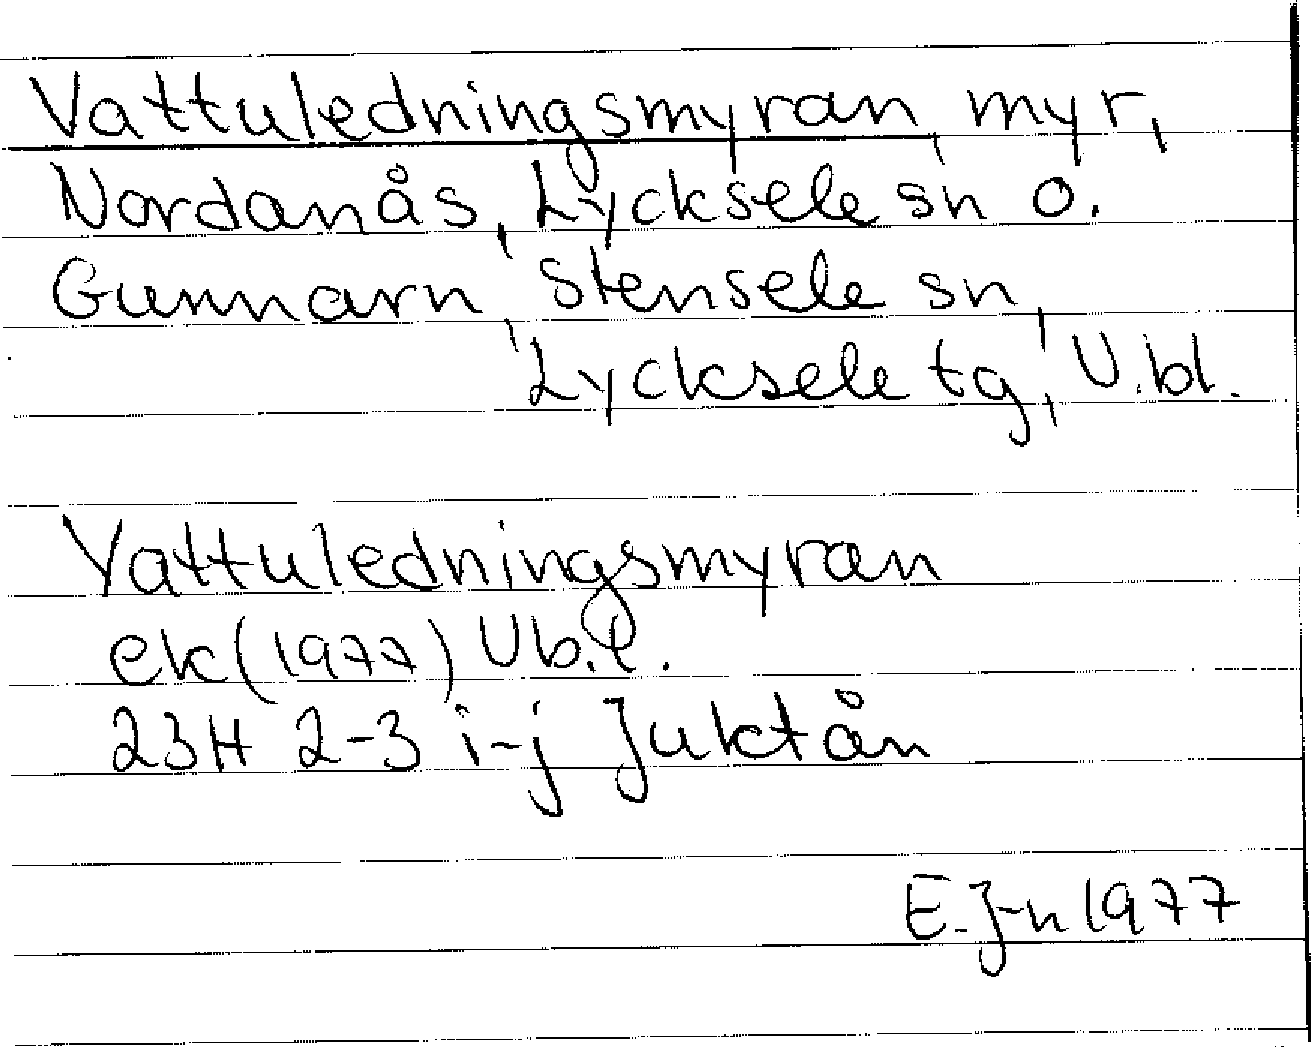 Vattuledningsmyran, myr,
Nordanås, Lycksele sn o.
Gunnarn, Stensele sn,
Lycksele tg, V.bl.
Vattuledningsmyran
ek (1977) Ub.l.
23H 2-3 i-j Juktån
E. J-n 1977